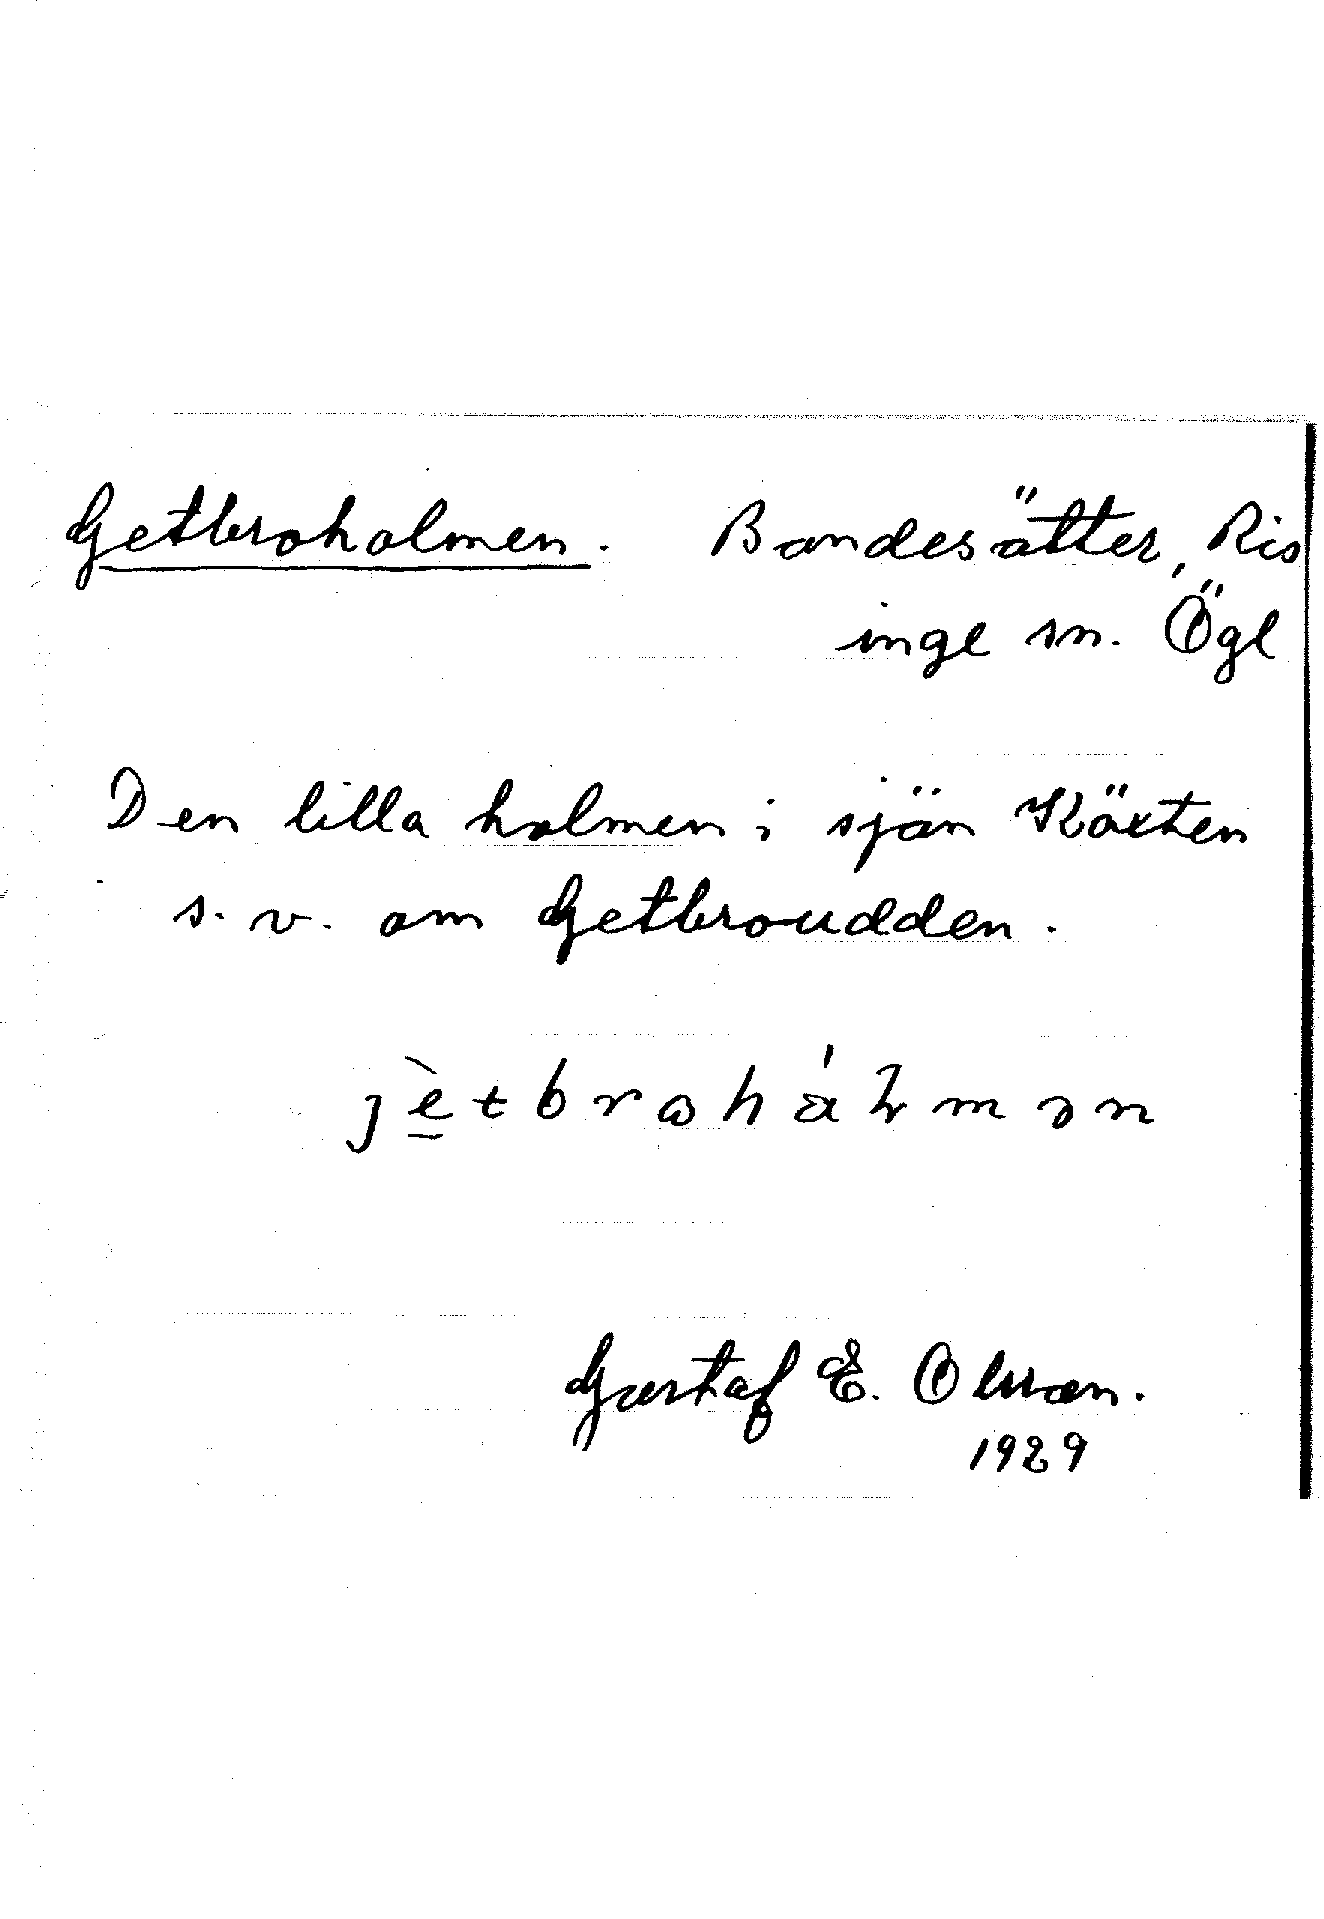 Getbroholmen. Bondesätter, Ris
inge sn. Ögl
Den lilla holmen i sjön Köxten
s. v. om Getbroudden.
Gustaf E. Olsson.
1929